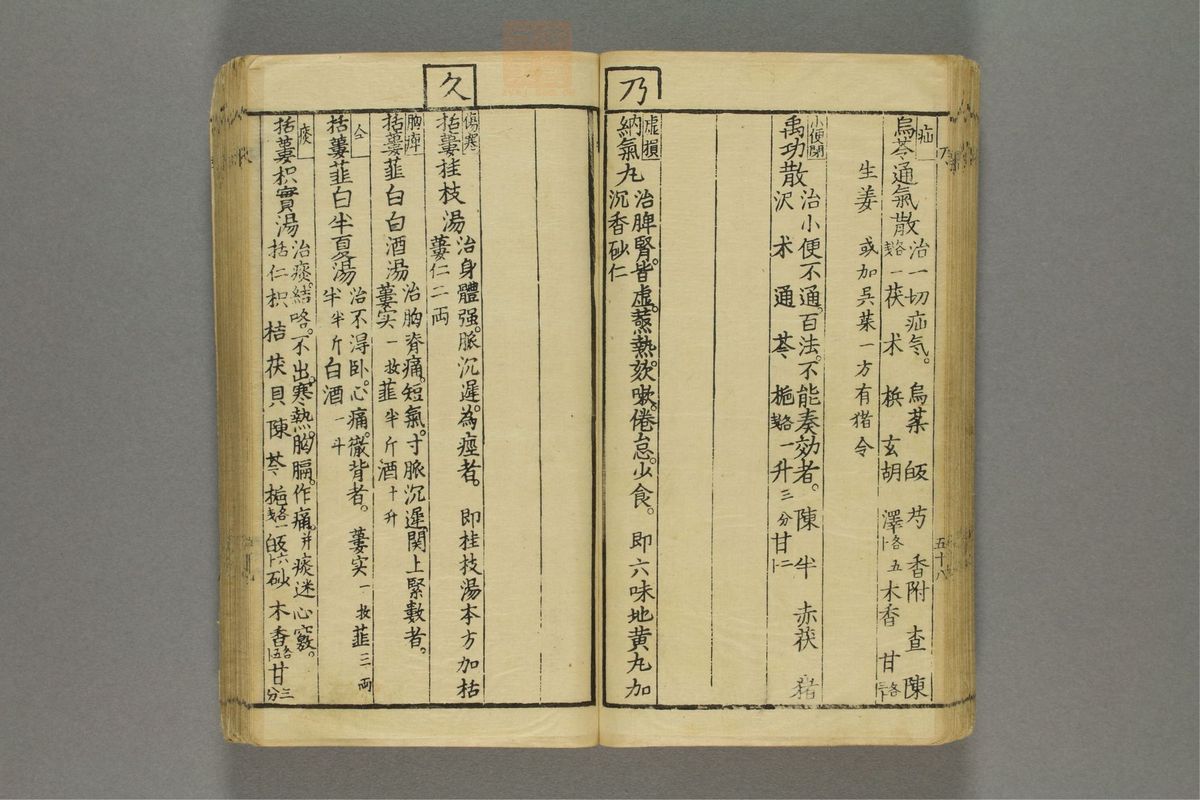 乃
疝
烏苓通氣散
治一切疝気。 烏菜 皈 芍 香附 査 陳
一茯 术 梹 玄胡 澤 各五 木香 甘
生姜 或加呉茱一方有猪令
五十八
小便閉
禹功散
治小便不通。百法。不能奏効者。陳 半 赤茯 猪
沢 术 通 芩 梔 各一 升 三分 甘 二
虚損
納氣丸
治脾腎。皆虚。蒸熱。欬嗽。倦怠。少食。 即六味地黄丸加
沉香砂仁
久
傷寒
括蔞桂枝湯
治身體强。脈沉遅。為痙者。 即桂枝湯本方加括
蔞仁二両
胸痺
括蔞薤白白酒湯
治胸脊痛。短氣。寸脈沉遅。関上緊數者。
蔞实一枚薤半斤酒十升
仝
括蔞薤白半夏湯
治不淂卧。心痛。徹背者。 蔞实一枚薤三両
半半斤白酒一斗
痰
括蔞枳實湯
治痰。結咯。不出。寒熱。胸膈。作痛。并痰迷心竅。
括仁枳 桔 茯 貝 陳 芩 梔 各一 皈 六 砂 木香 各五 甘 三分